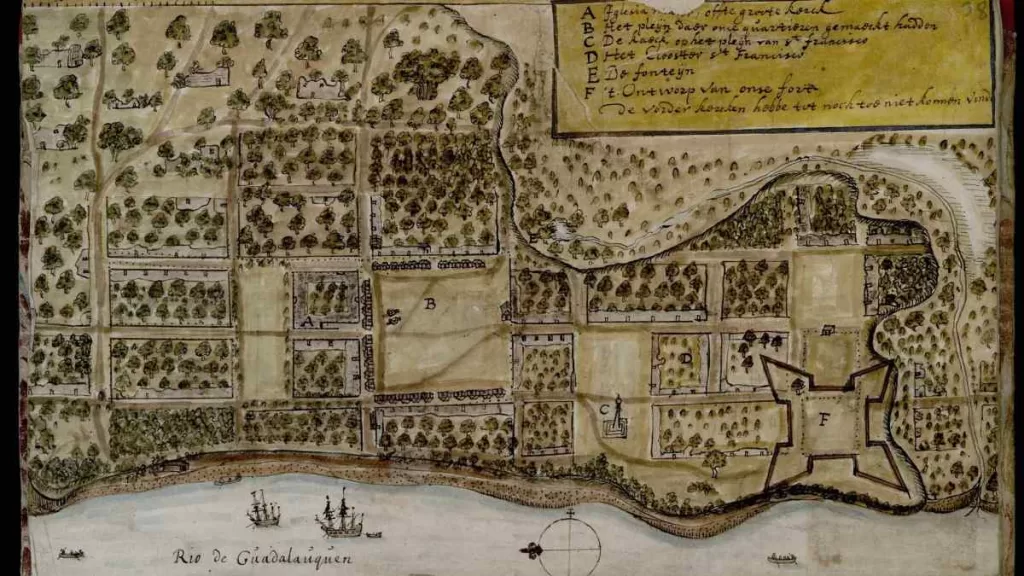 A Iglesia ofte groote Kerck
B Het pleijn daer onse quartieren gemaeckt hadden
C De kaeck op het pleijn van St Francisco
D Het Clooster St Francisco
E De fonteijn
F 't Ontworp van onse fort
De vorder kercken hebbe tot noch toe niet konnen vinde
38
B
A
D
C
F
Rio de Guadalauquen